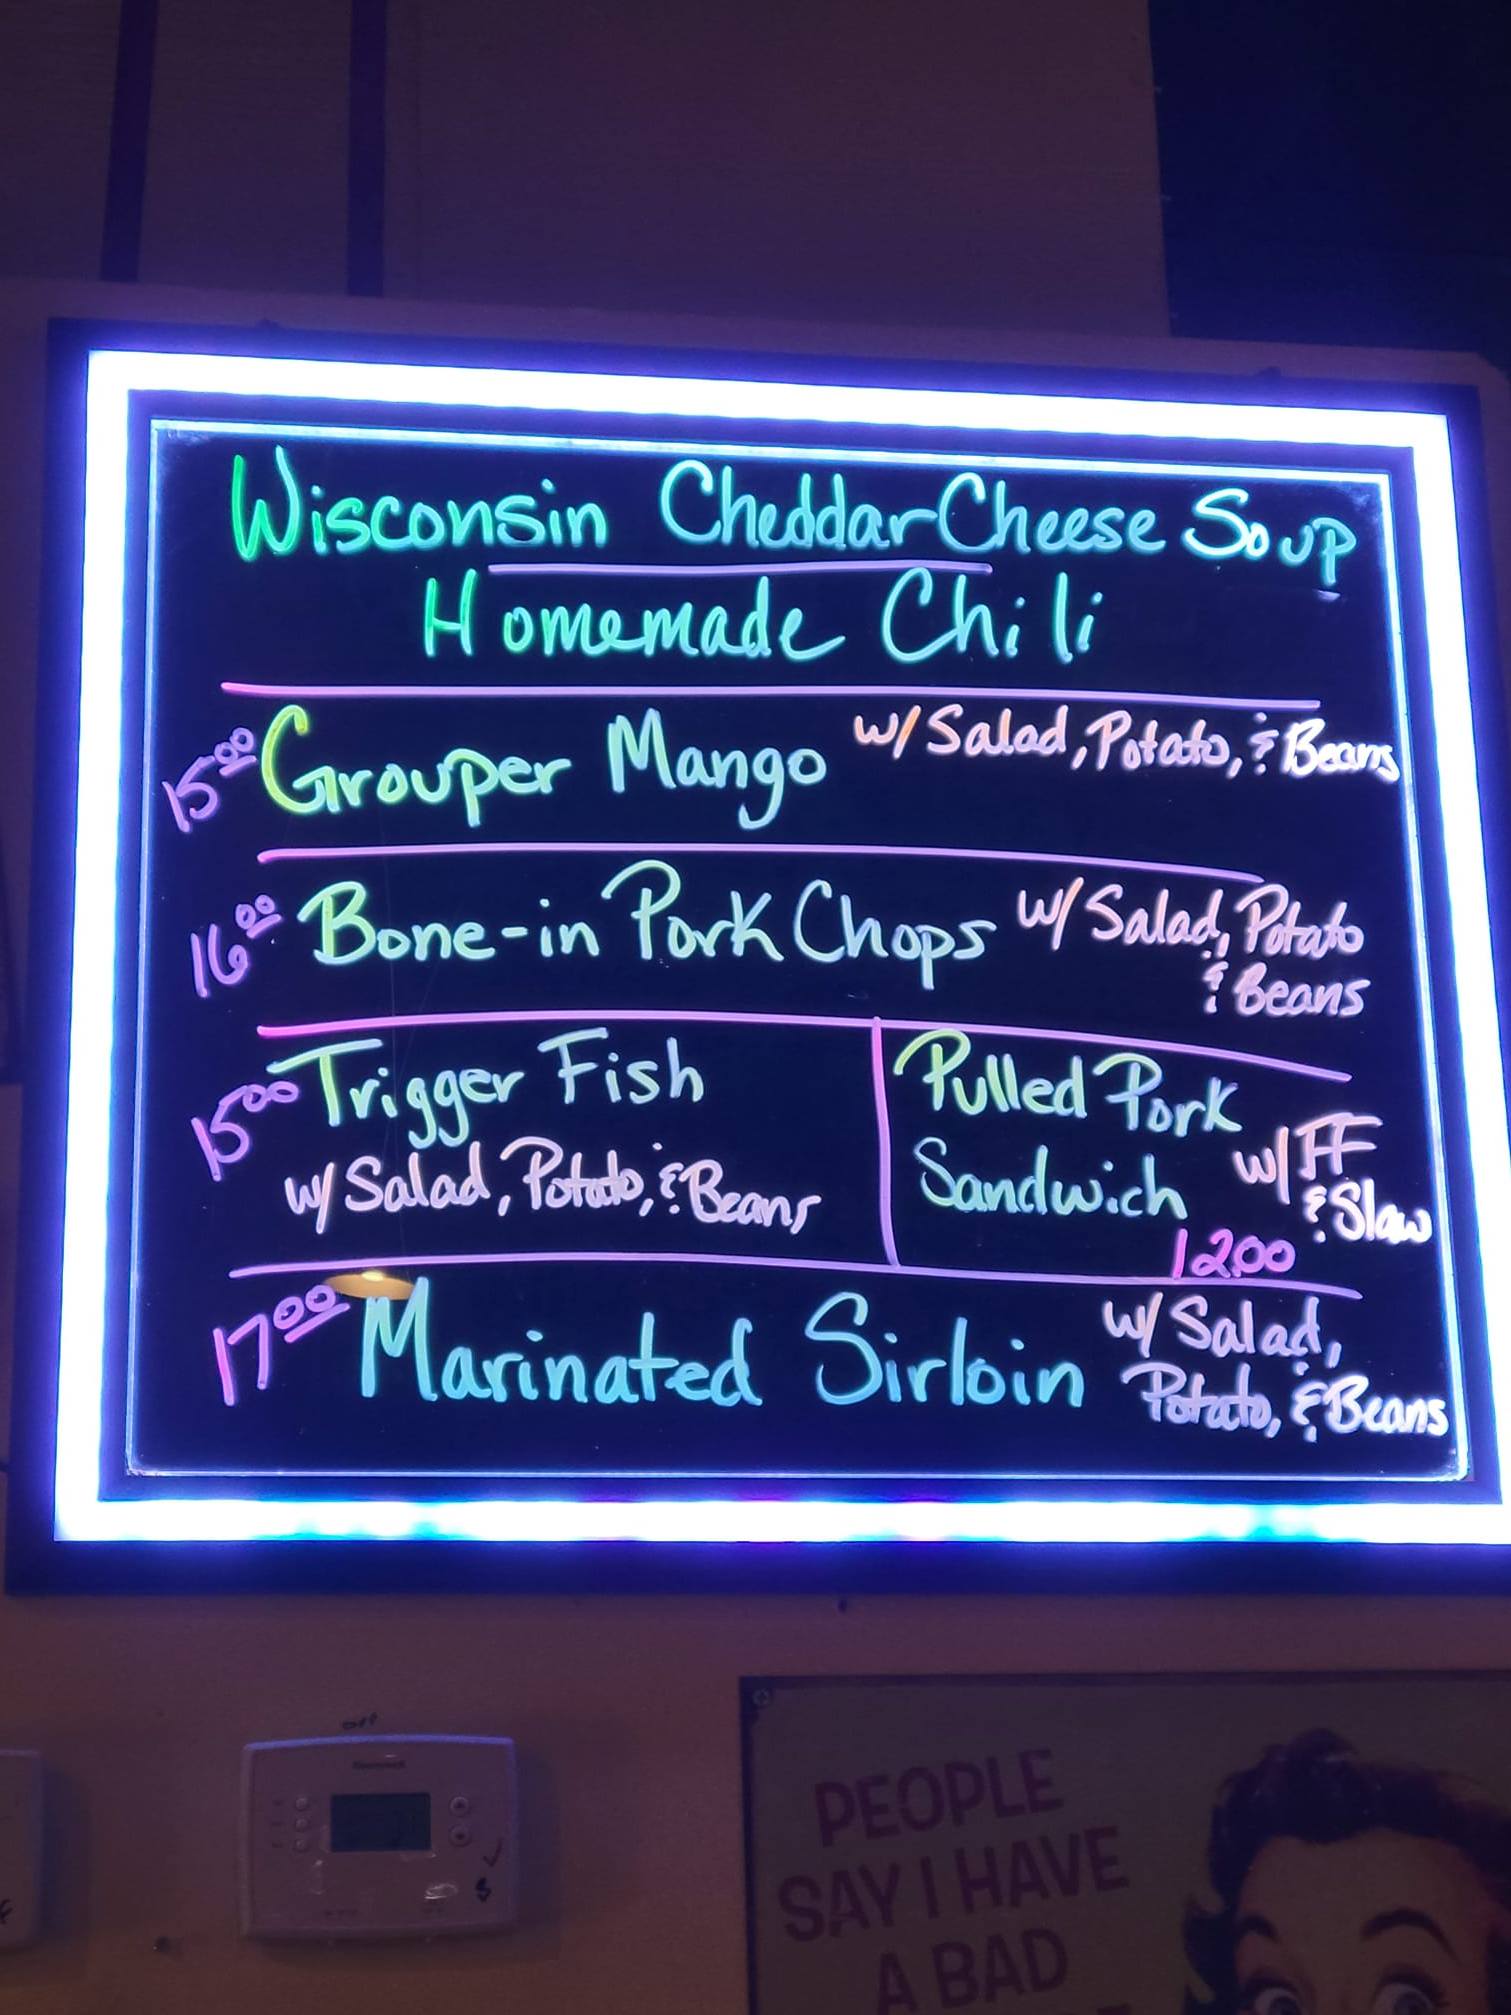 Wisconsin Cheddar Cheese Soup
Homemade Chili
15.00 Grouper Mango w/ Salad, Potato, & Beans
16.00 Bone-in Pork Chops w/ Salad, Potato
& Beans
15.00 Trigger Fish
w/ Salad, Potato, & Beans
Pulled Pork
Sandwich w/ FF
& Slaw
12.00
17.00 Marinated Sirloin w/ Salad,
Potato, & Beans
OFF
Honeywell
PEOPLE
SAY I HAVE
A BAD